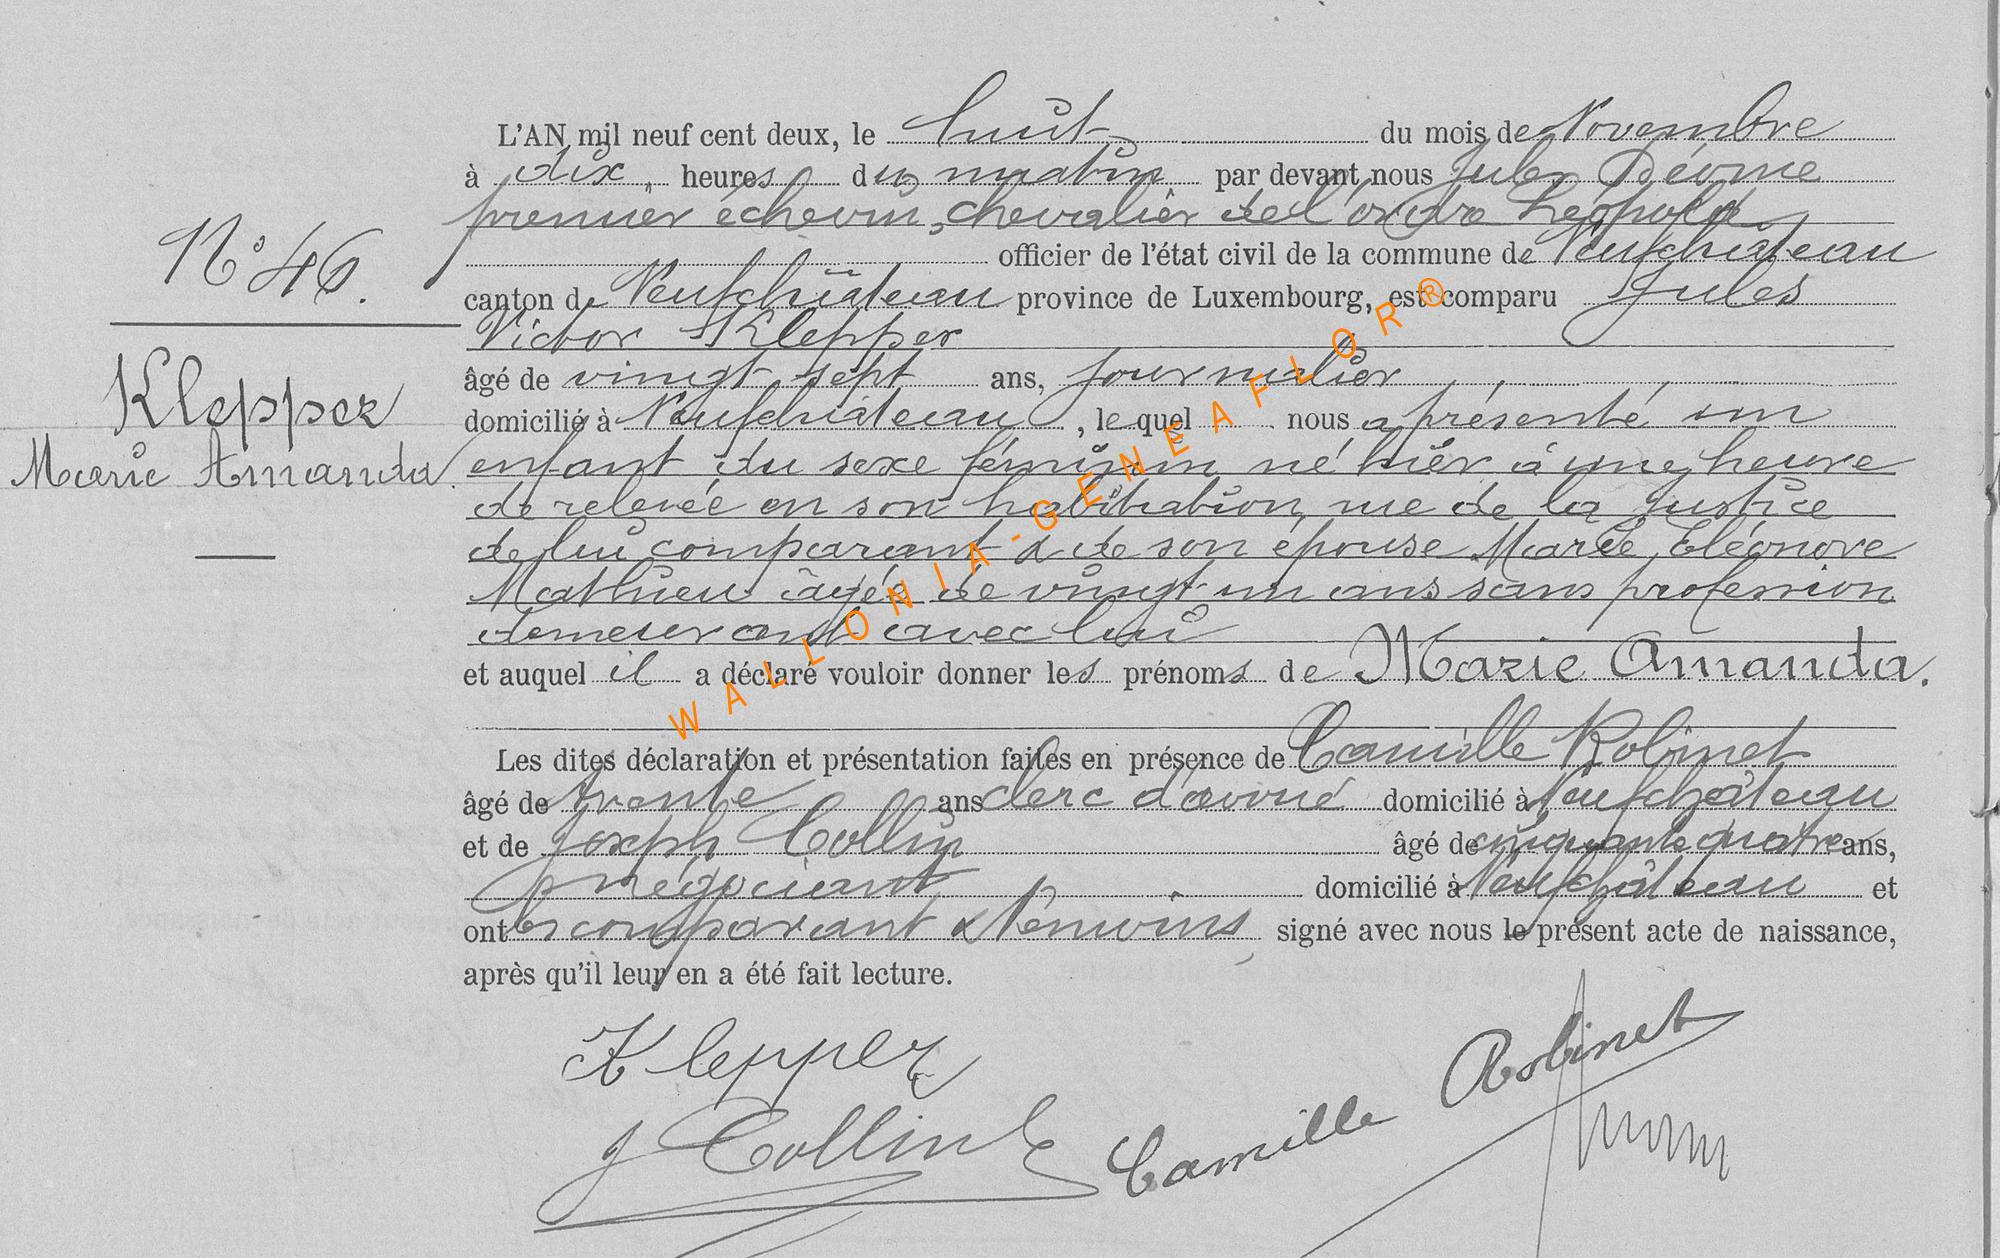 N° 46.
Klepper
Marie Amanda.
L'AN mil neuf cent deux, le huit du mois de Novembre
à dix heures du matin par devant nous Jules
premier échevin, chevalier de l'ordre Léopold
officier de l'état civil de la commune de Neufchâteau
canton de Neufchâteau province de Luxembourg, est comparu Jules
Victor Klepper
âgé de vingt sept ans, journalier
domicilié à Neufchâteau, le quel nous a présenté un
enfant du sexe féminin né hier à une heure
de relevée en son habitation rue de la Justice
de lui comparant & de son épouse Marie Eléonore
Mathieu âgée de vingt-un ans sans profession
demeurant avec lui
et auquel il a déclaré vouloir donner les prénoms de Marie Amanda.
Les dites déclaration et présentation faites en présence de Camille Robinet
âgé de trente ans clerc d'avoué domicilié à Neufchâteau
et de Joseph Collin âgé de cinquante quatre ans,
négociant domicilié à Neufchâteau et
ont les comparant & témoins signé avec nous le présent acte de naissance,
après qu'il leur en a été fait lecture.
Klepper
J Collin
Camille Robinet
WALLONIA-GENEAFLOR®